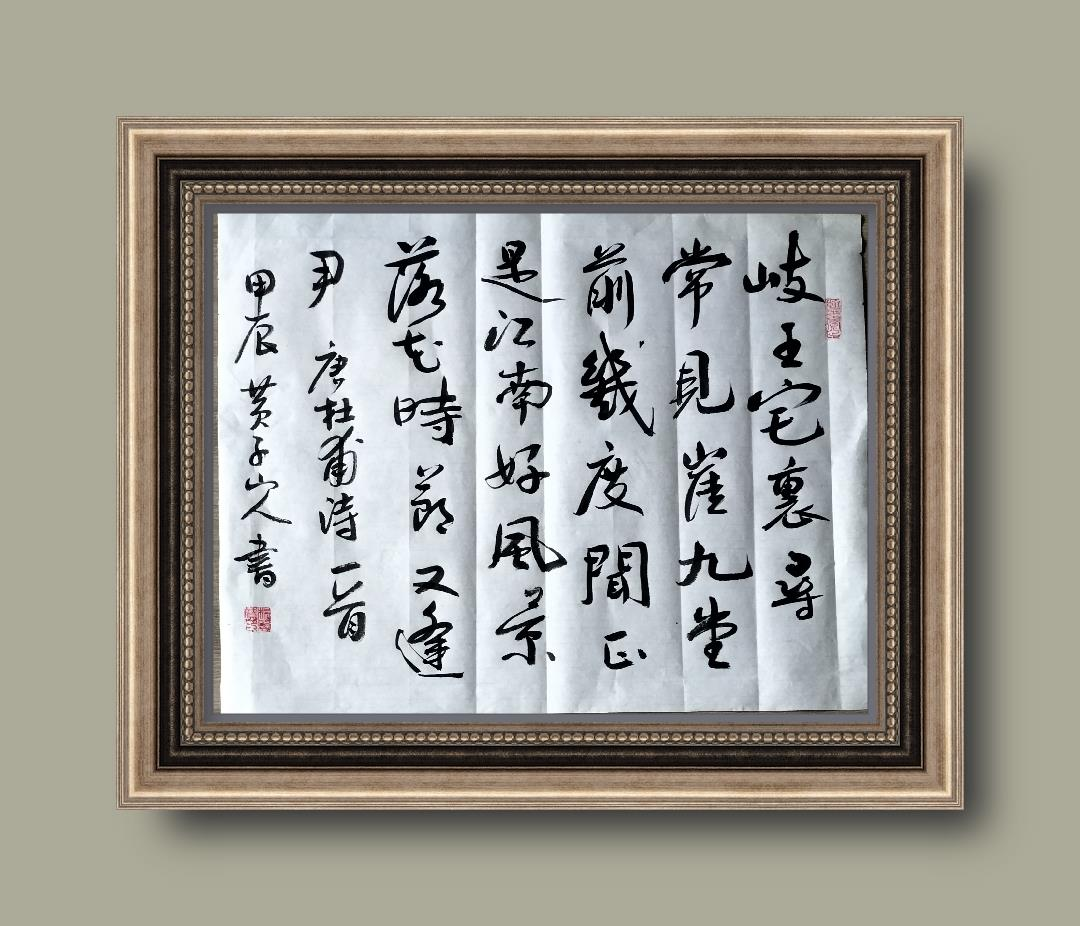 岐王宅裏尋
常見崔九堂
前幾度聞正
是江南好風景
落花時節又逢
君 唐杜甫詩一首
甲辰黄子山人書